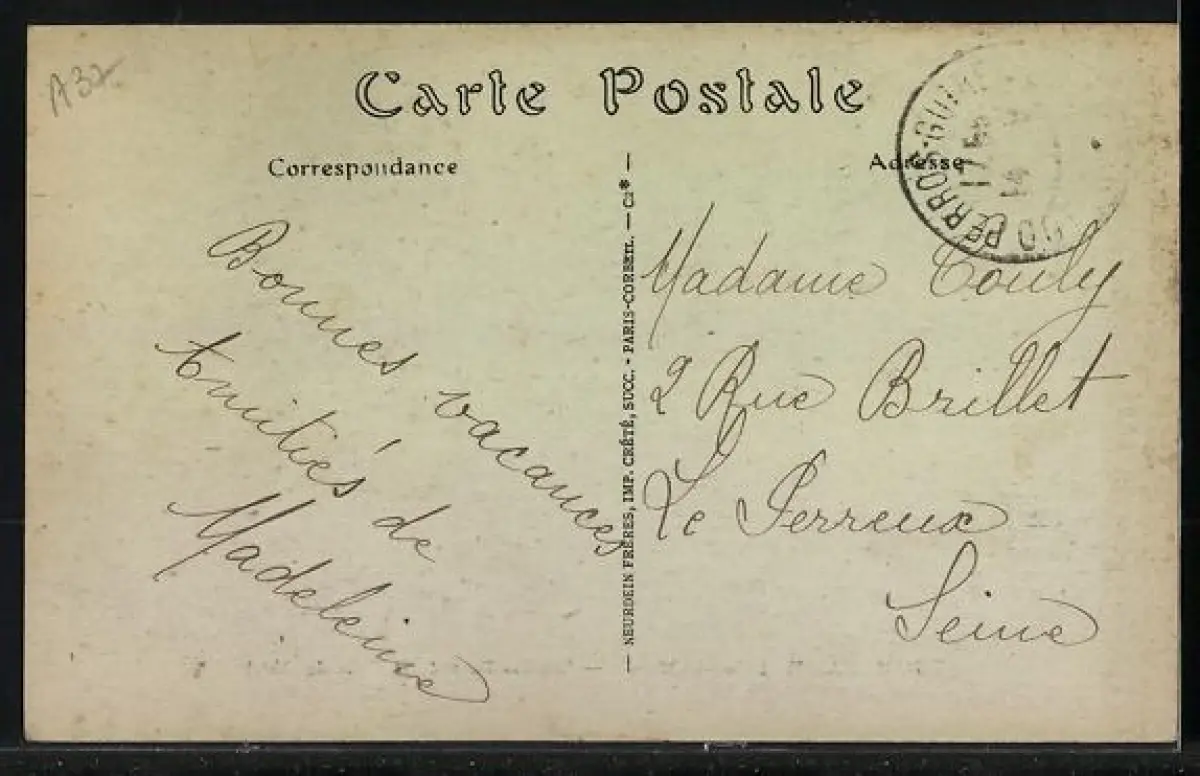 A32
Carte Postale
Correspondance
Adresse
PERROS-GUI
17
Bonnes vacances
Amitiés de
Madeleine
NEURDEIN FRÈRES, IMP. CRÉTÉ, SUCC. - PARIS-CORBEIL. - Cie
Madame Couly
2 Rue Brillet
Le Perreux
Seine